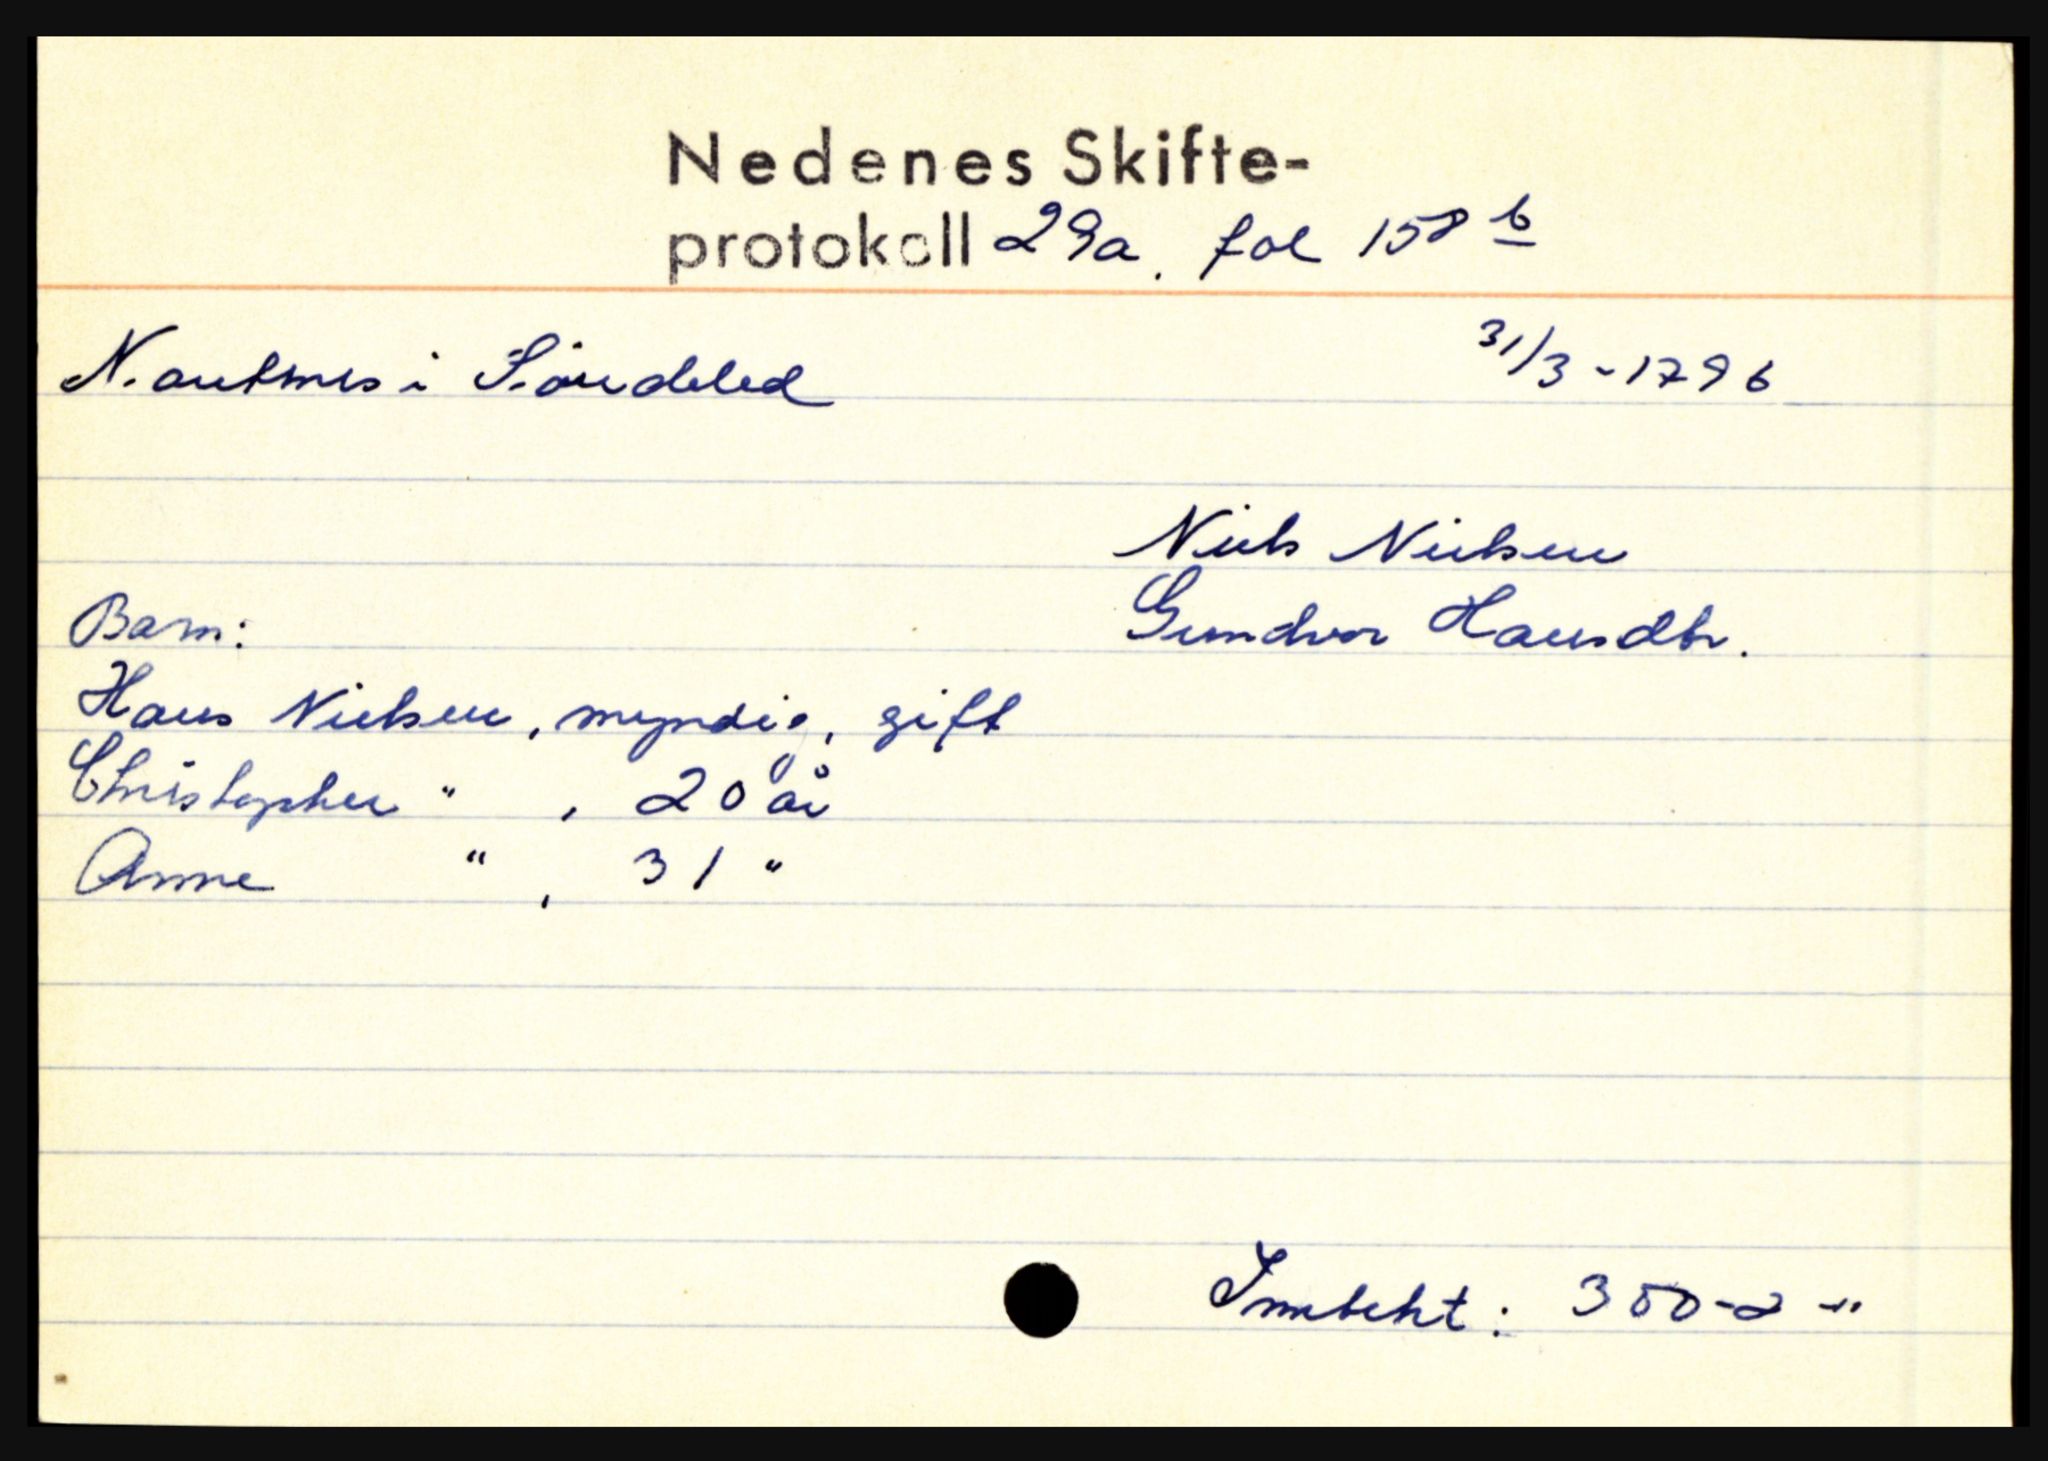 Nedenes Skifte-
protokoll 29a. fol 158 b
Nautnes i Söndeled 31/3-1796
Niels Nielsen
Barn: Gundvor Hansdtr.
Hans Nielsen, myndig, gift
Christopher " , 20 år
Anne " , 31 "
Inntekt: 350-2-"